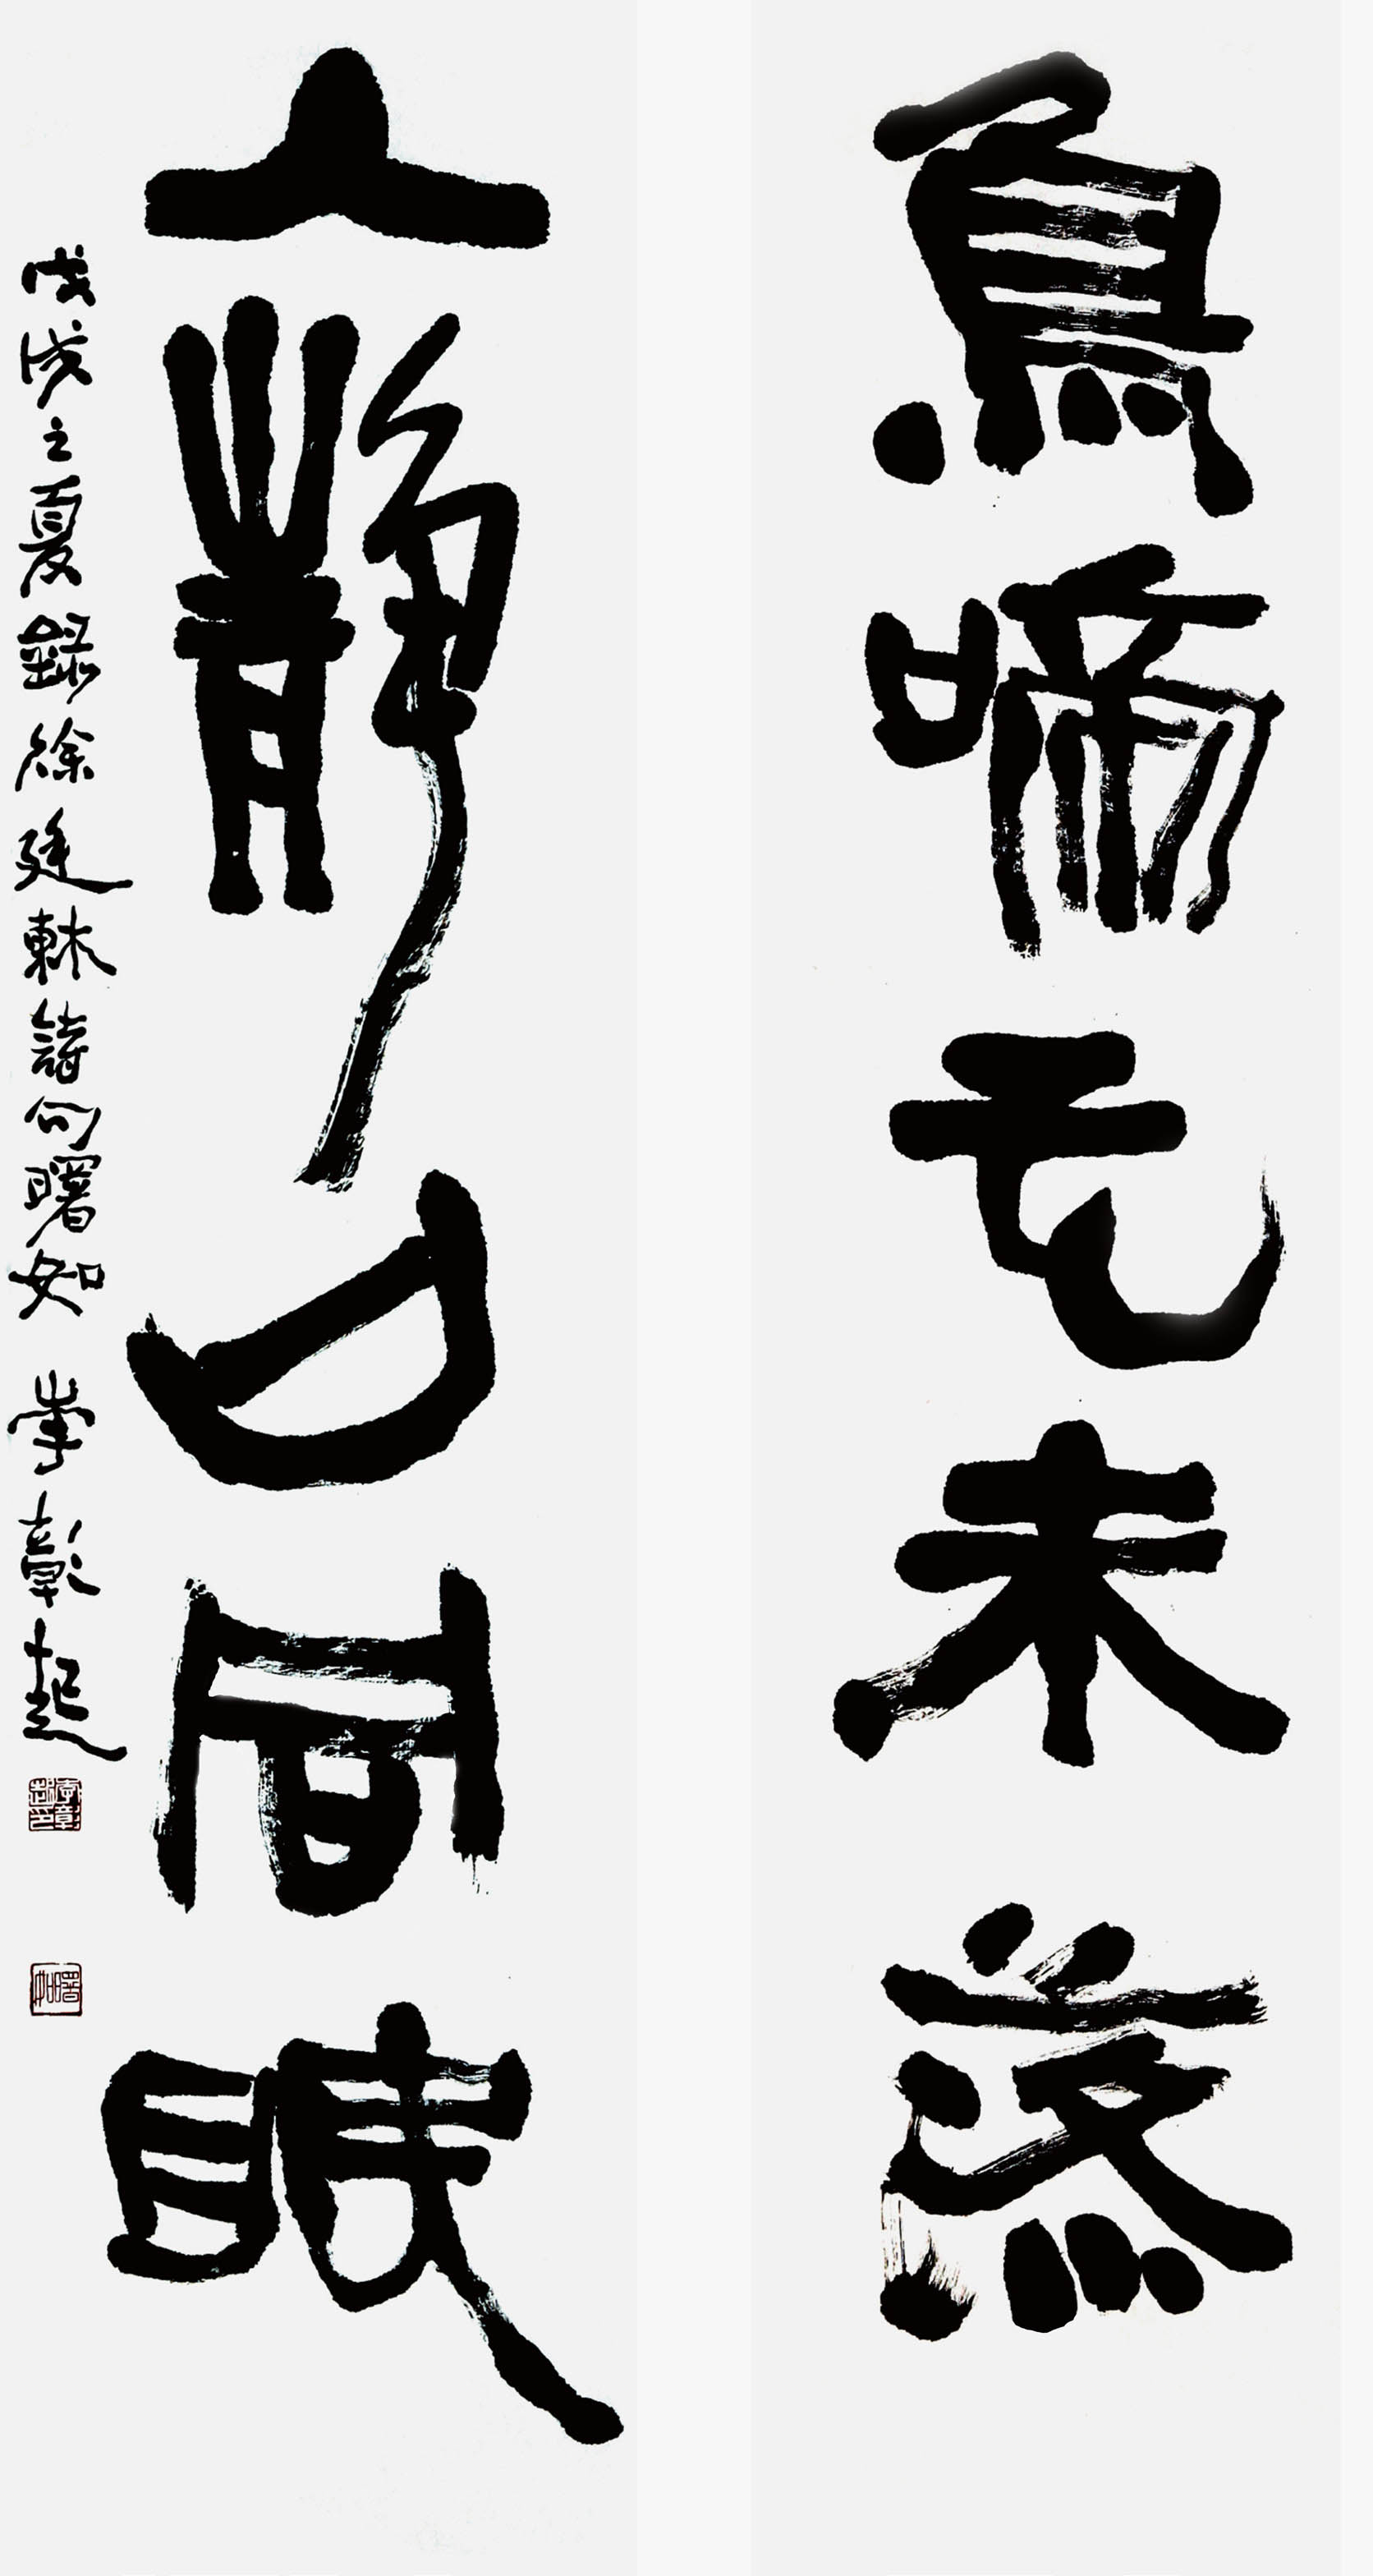 鳥啼花未落
山靜月同眠
戊戌之夏錄徐廷棘詩句曙如 李彰起